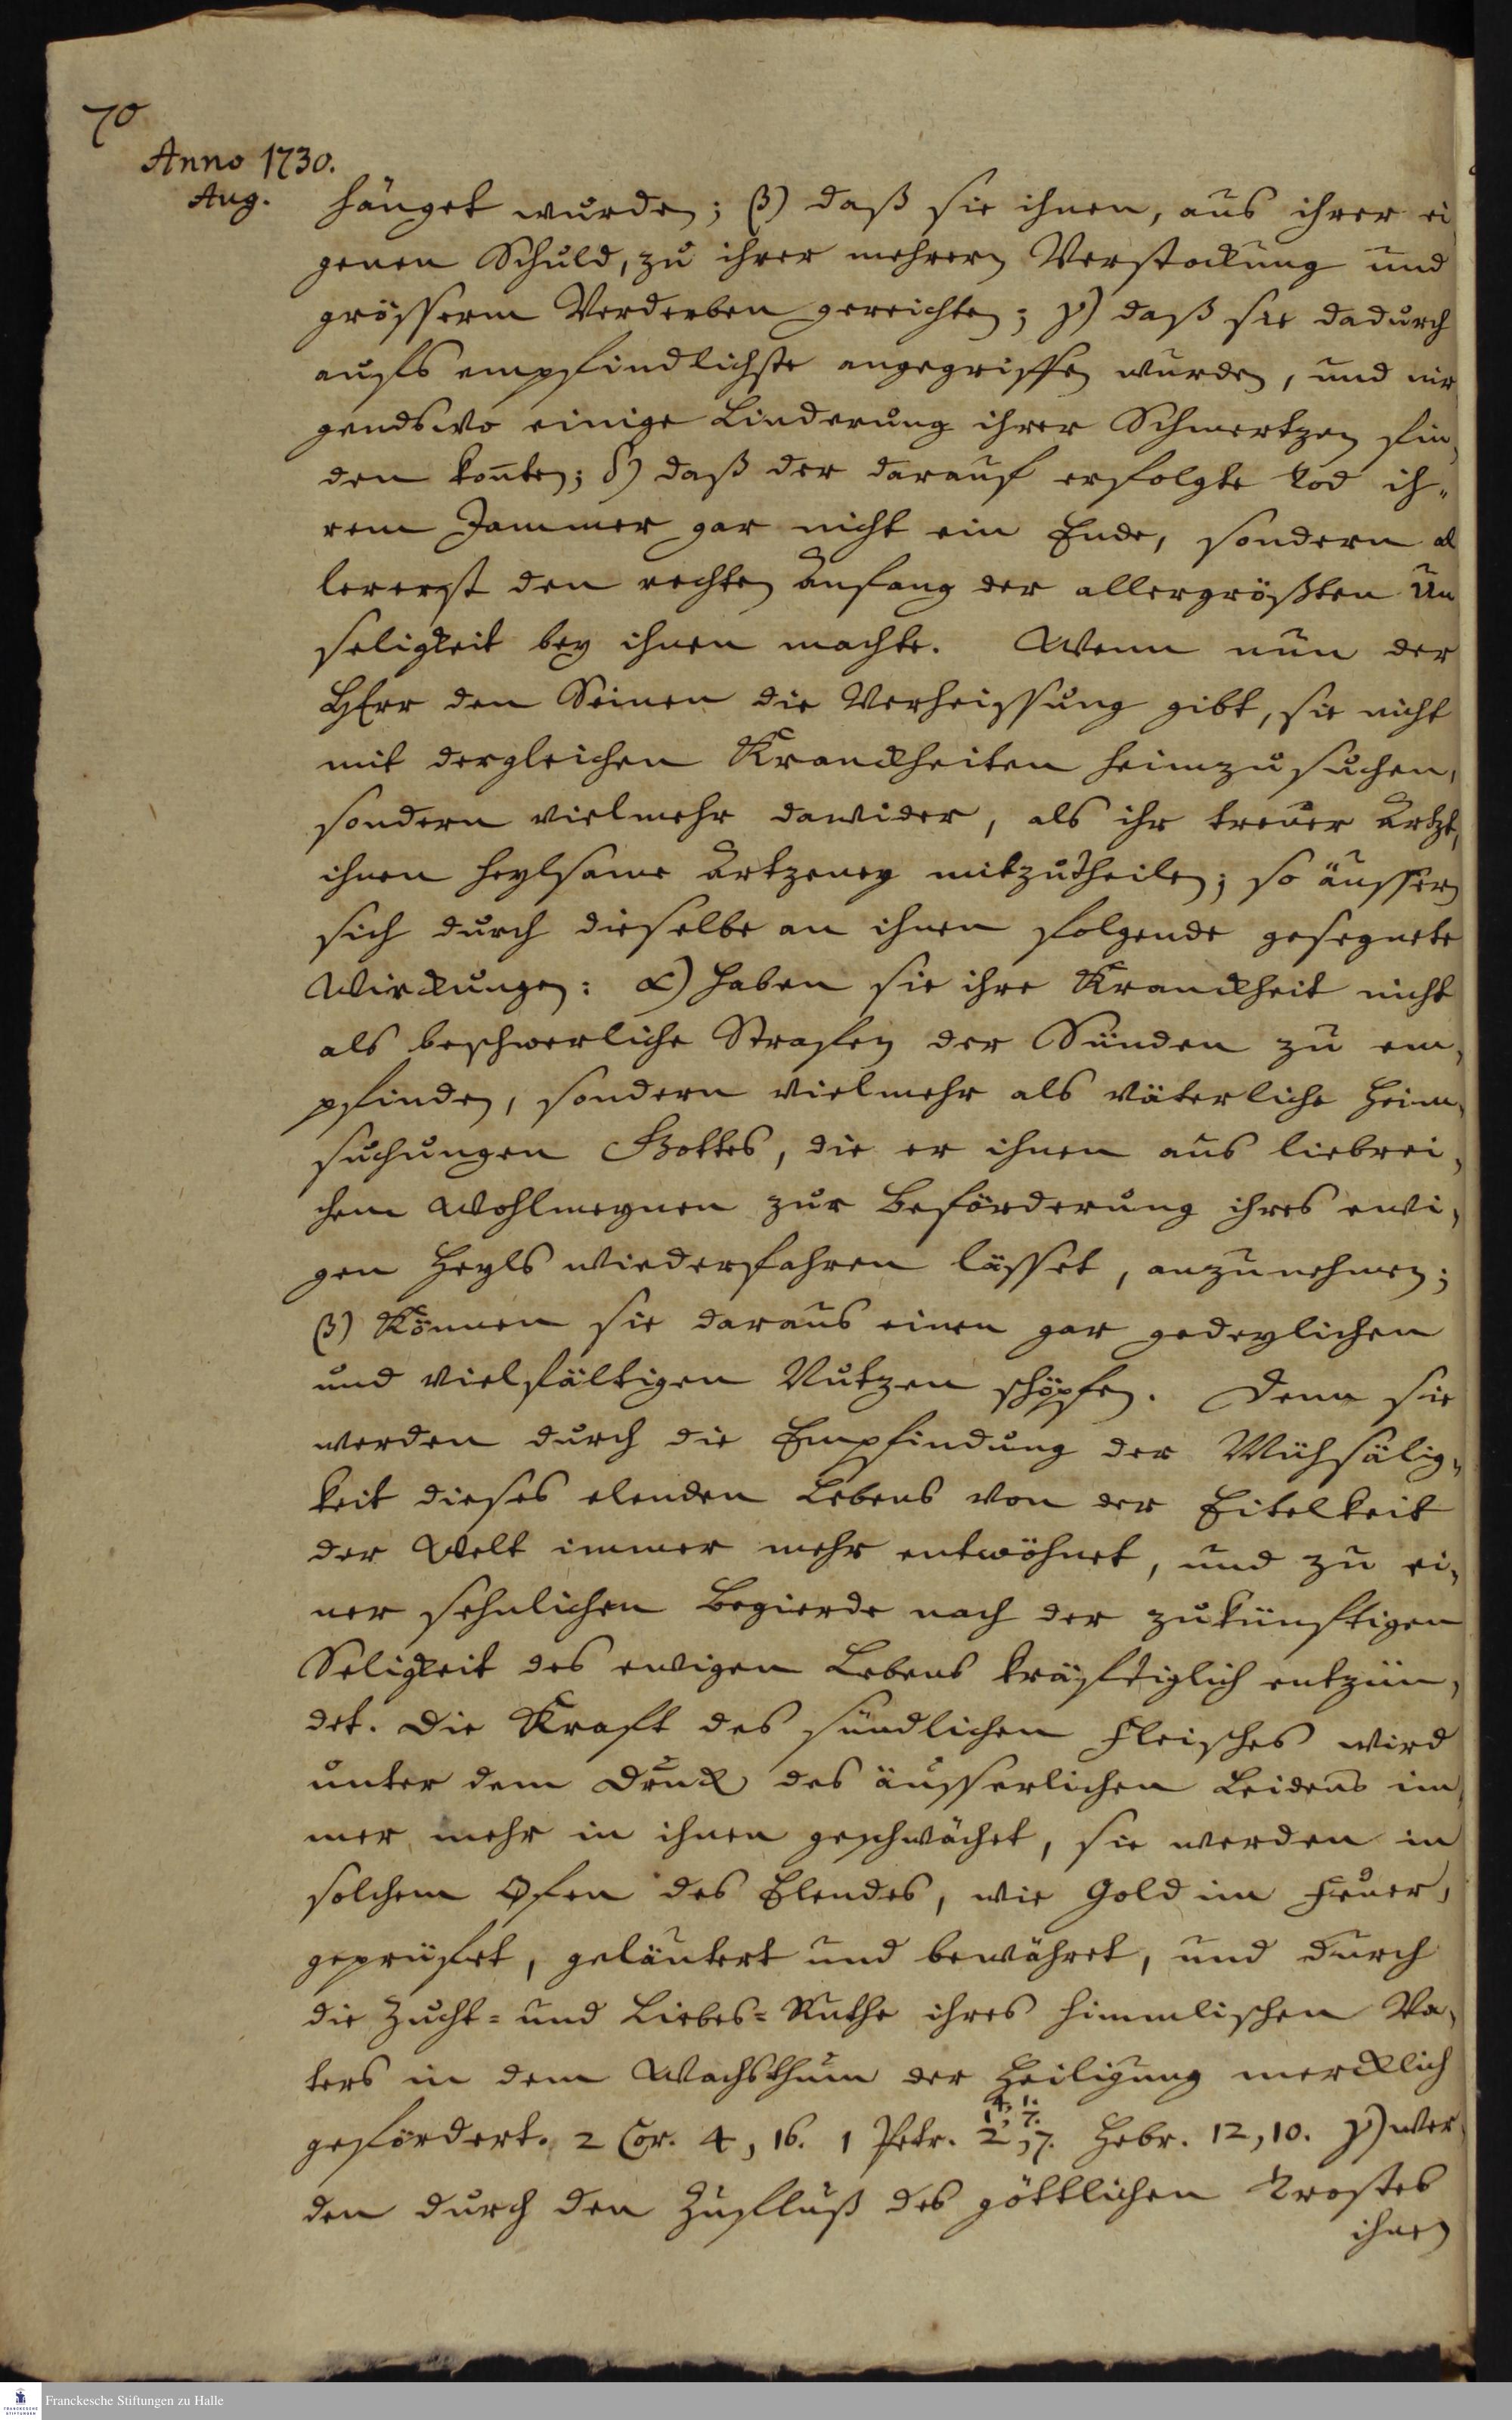 70
Anno 1730.
Aug.
hänget wurden; β) daß sie ihnen, aus ihrer ei
genen Schuld, zu ihrer mehrern Verstockung und
grösserm Verderben gereichten; γ) daß sie dadurch
aufs empfindlichste angegriffen wurden, und nir
gendswo einige Linderung ihrer Schmertzen fin,
den kon̄ten; δ) daß der darauf erfolgte Tod ih„
rem Jammer gar nicht ein Ende, sondern al
lererst den rechten Anfang der allergrößten Un
seligkeit bey ihnen machte. Wenn nun der
HErr den Seinen die Verheissung gibt, sie nicht
mit dergleichen Kranckheiten heimzusuchen,
sondern vielmehr dawider, als ihr treuer Artzt,
ihnen heylsame Artzeney mitzutheilen; so äussern
sich durch dieselbe an ihnen folgende gesegnete
Wirckungen: α) haben sie ihre Kranckheit nicht
als beschwerliche Strafen der Sünden zu em,
pfinden, sondern vielmehr als väterliche Heim,
suchungen Gottes, die er ihnen aus liebrei,
chem Wohlmeynen zur Beförderung ihres ewi,
gen Heyls wiederfahren lässet, anzunehmen;
β) Können sie daraus einen gar gedeylichen
und vielfältigen Nutzen schöpfen. Denn sie
werden durch die Empfindung der Mühsälig„
keit dieses elenden Lebens von der Eitelkeit
der Welt immer mehr entwöhnet, und zu ei,
ner sehnlichen Begierde nach der zukünftigen
Seligkeit des ewigen Lebens kräftiglich entzün,
det. Die Kraft des sündlichen Fleisches wird
unter dem Druck des äusserlichen Leidens im,
mer mehr in ihnen geschwächet, sie werden in
solchem Ofen des Elendes, wie Gold im Feuer,
geprüfet, geläutert und bewähret, und durch
die Zucht= und Liebes=Ruthe ihres himmlischen Va,
ters in dem Wachsthum der Heiligung mercklich
4, 1.
1, 7.
gefördert. 2 Cor. 4, 16. 1 Petr. 2, 7. Hebr. 12, 10. γ) wer
den durch den Zufluß des göttlichen Trostes
ihnen
Franckesche Stiftungen zu Halle
FRANCKESCHE
STIFTUNGEN